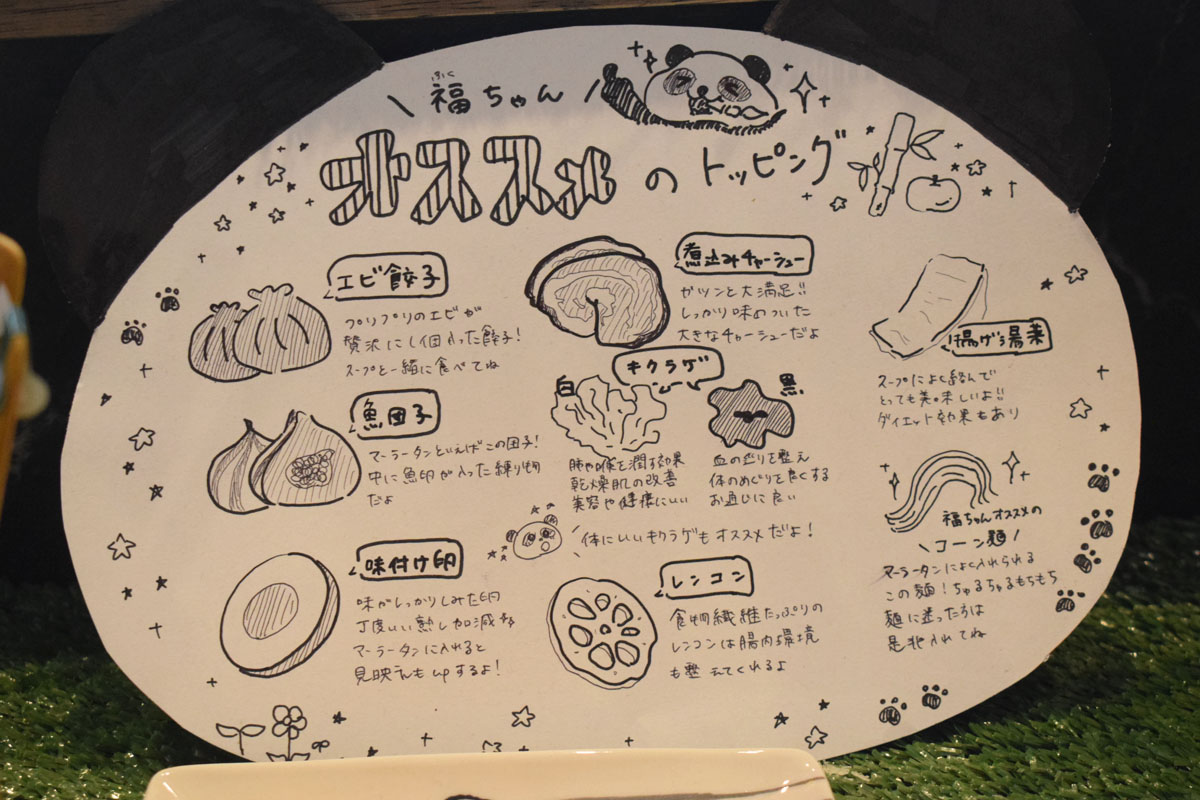 ふく
\ 福ちゃん /
オススメのトッピング
エビ餃子
プリプリのエビが
贅沢に1個入った餃子!
スープと一緒に食べてね
煮込みチャーシュー
ガツンと大満足!!
しっかり味のついた
大きなチャーシューだよ
揚げ湯葉
スープによく絡んで
とっても美味しいよ!!
ダイエット効果もあり
魚団子
マーラータンといえばこの団子!
中に魚卵が入った練り物
だよ
キクラゲ
白
肺や喉を潤す効果
乾燥肌の改善
美容や健康にいい
黒
血の巡りを整え
体のめぐりを良くする
お通じに良い
体にいいキクラゲもオススメだよ!
福ちゃんオススメの
\ コーン麺 /
マーラータンによく入れられる
この麺!ちゅるちゅるもちもち
麺に迷った方は
是非入れてね
味付け卵
味がしっかりしみた卵
丁度いい熟し加減
マーラータンに入れると
見映えもupするよ!
レンコン
食物繊維たっぷりの
レンコンは腸内環境
も整えてくれるよ